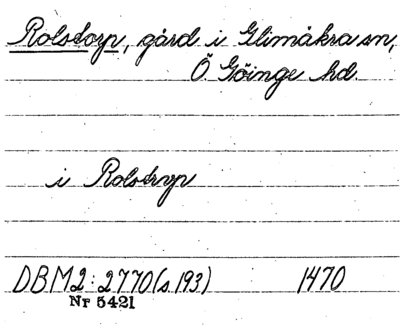 Rolstorp, gård i Glimåkra sn,
Ö Göinge hd.
i Rolstrvp
DBM2:2770(s.193) 1470
Nr 5421